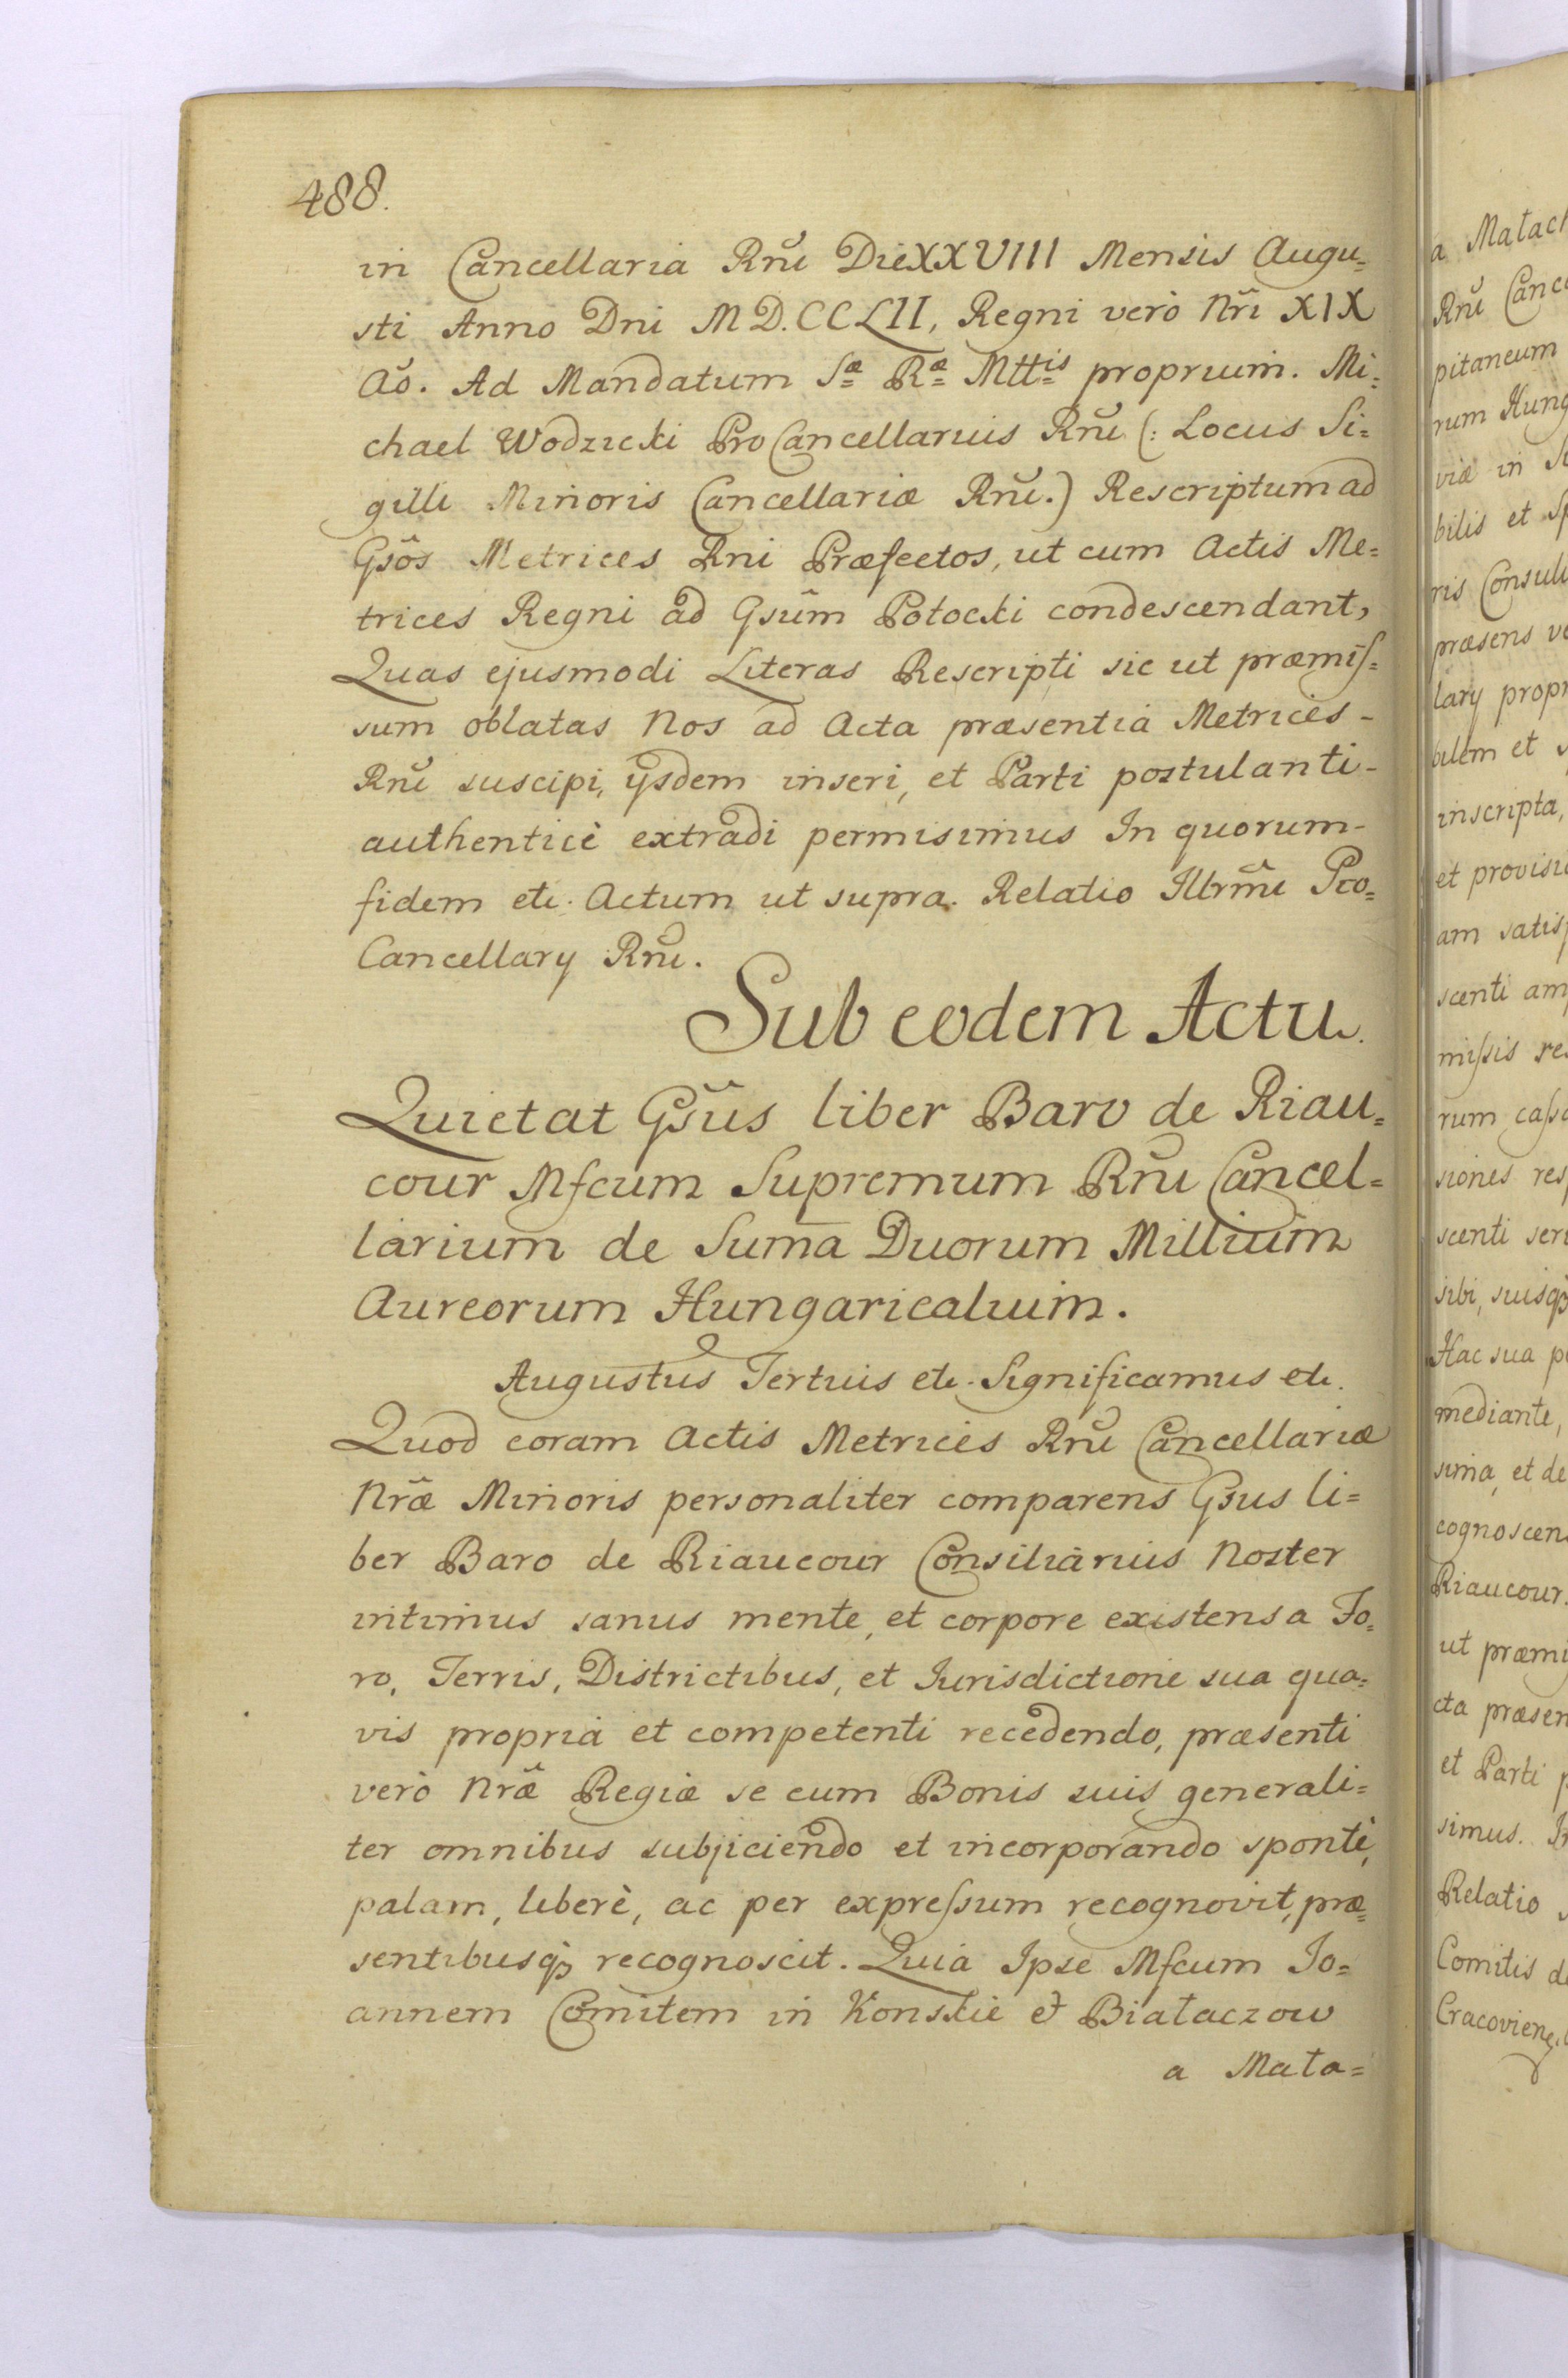 488.
in Cancellaria Rnĩ Die XXVIII Mensis Augu=
sti Anno Dni MD.CCLII, Regni verò Nrĩ XIX
Aõ. Ad Mandatum Sæ Ræ Mttis proprium. Mi=
chael Wodzicki ProCancellarius Rnĩ (: Locus Si=
gilli Minoris Cancellariæ Rnĩ.) Rescriptum ad
Gsôs Metrices Rni Præfectos, ut cum Actis Me=
trices Regni ad Gsûm Potocki condescendant,
Quas ejusmodi Literas Rescripti sic ut præmiſ=
sum oblatas Nos ad Acta præsentia Metrices -
Rnĩ suscipi, ijsdem inseri, et Parti postulanti -
authenticè extradi permisimus In quorum -
fidem etc. Actum ut supra. Relatio Illrmĩ Pro=
Cancellary Rnĩ.
Sub eodem Actu.
Quietat Gsûs liber Baro de Riau=
cour Mfcum Supremum Rnĩ Cancel=
larium de Sum̅a Duorum Millium
Aureorum Hungaricalium.
Augustus Tertius etc. Significamus etc.
Quod coram Actis Metrices Rnĩ Cancellariæ
Nræ̃ Minoris personaliter comparens Gsus li=
ber Baro de Riaucour Consiliarius Noster
intimus sanus mente, et corpore existens a Fo=
ro, Terris, Districtibus, et Iurisdictione sua qua=
vis propria et competenti recedendo, præsenti
verò Nræ̃ Regiæ se cum Bonis suis generali=
ter omnibus subjiciendo et incorporando spontè,
palam, liberè, ac per expreſsum recognovit, præ=
sentibusq̀ȝ recognoscit. Quia Ipse Mfcum Jo=
annem Comitem in Konskie et Białaczow
a Mała=
a Małach
Rnĩ Canc
pitaneum
rum Hung
viæ in
bilis et
ris Consuli
præsens
lary prop
bilem et
inscripta,
et provisi
am satis
scenti am
miſsis re
rum caſs
siones res
scenti ser
sibi, suisqȝ
Hac sua p
mediante,
sima, et de
cognoscen
Riaucour.
ut præmi
cta præsen
et Parti
simus. In
Relatio
Comitis d
Cracovien